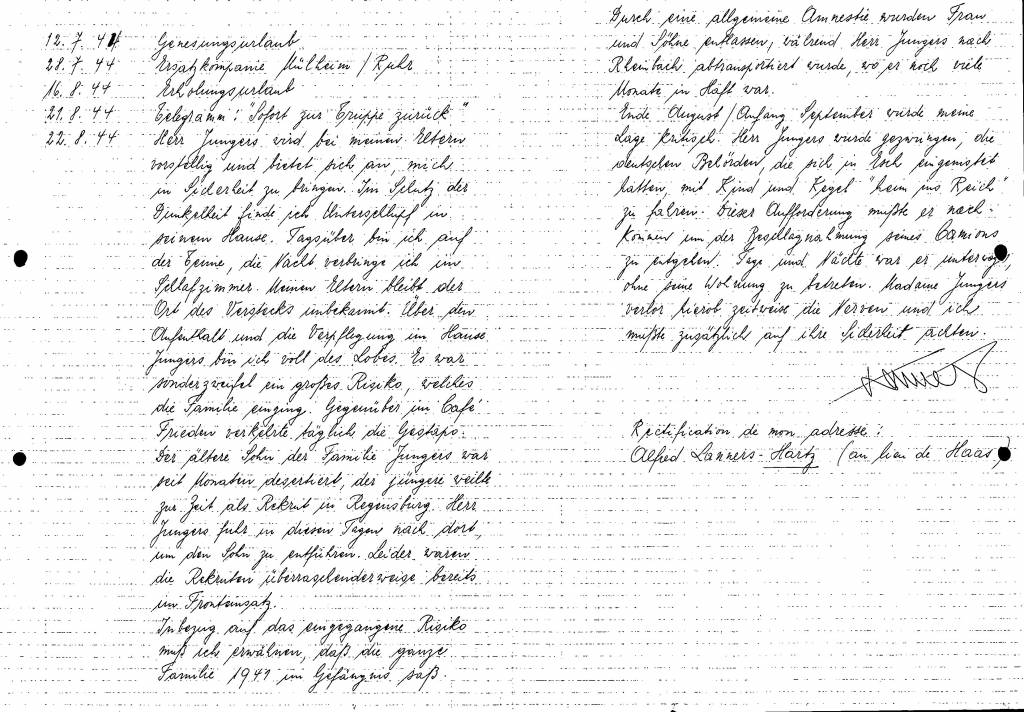 12. 7. 44 Genesungsurlaub
28. 7. 44 Ersatzkompanie Mülheim / Ruhr
16. 8. 44 Erholungsurlaub
21. 8. 44 Telegramm: "Sofort zur Truppe zurück"
22. 8. 44 Herr Jungers wird bei meinen Eltern
vorstellig und bietet sich an mich
in Sicherheit zu bringen. Im Schutz der
Dunkelheit finde ich Unterschlupf in
seinem Hause. Tagsüber bin ich auf
der Tenne, die Nacht verbringe ich im
Schlafzimmer. Meinen Eltern bleibt der
Ort des Verstecks unbekannt. Über den
Aufenthalt und die Verpflegung im Hause
Jungers bin ich voll des Lobes. Es war
sonder zweifel ein großes Risiko, welches
die Familie einging. Gegenüber im Café
Frieden verkehrte täglich die Gestapo.
Der ältere Sohn der Familie Jungers war
seit Monaten desertiert, der jüngere weilte
zur Zeit als Rekrut in Regensburg. Herr
Jungers fuhr in diesen Tagen nach dort,
um den Sohn zu entführen. Leider waren
die Rekruten überraschenderweise bereits
im Fronteinsatz.
Inbezug auf das eingegangene Risiko
muß ich erwähnen, daß die ganze
Familie 1941 im Gefängnis saß.
Durch eine allgemeine Amnestie wurden Frau
und Söhne entlassen, während Herr Jungers nach
Rheinbach abtransportiert wurde, wo er noch viele
Monate in Haft war.
Ende August / Anfang September wurde meine
Lage kritisch. Herr Jungers wurde gezwungen, die
deutschen Behörden, die sich in Esch eingenistet
hatten, mit Kind und Kegel "heim ins Reich"
zu fahren. Dieser Aufforderung mußte er nach-
kommen um der Beschlagnahmung seines Camions
zu entgehen. Tage und Nächte war er unterwegs,
ohne seine Wohnung zu betreten. Madame Jungers
verlor hierob zeitweise die Nerven und ich
mußte zusätzlich auf ihre Sicherheit achten.
Rectification de mon adresse:
Alfred Lanners-Hartz (au lieu de Haas)